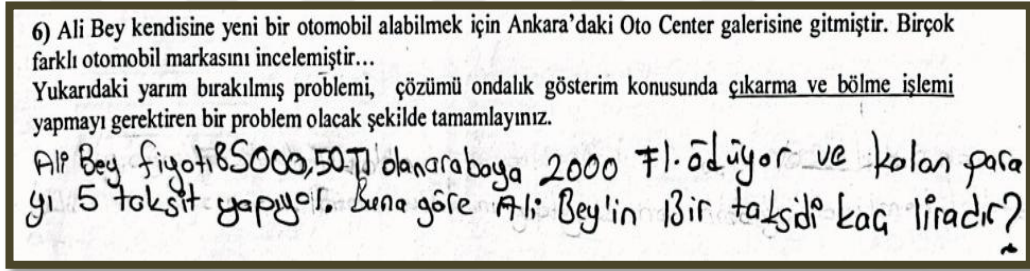 6) Ali Bey kendisine yeni bir otomobil alabilmek için Ankara'daki Oto Center galerisine gitmiştir. Birçok
farklı otomobil markasını incelemiştir...
Yukarıdaki yarım bırakılmış problemi, çözümü ondalık gösterim konusunda çıkarma ve bölme işlemi
yapmayı gerektiren bir problem olacak şekilde tamamlayınız.
Ali Bey fiyatı 85000,50 TL olan arabaya 2000 Tl. ödüyor ve kalan para
yı 5 taksit yapıyor. Buna göre Ali Bey'in Bir taksidi kaç liradır?